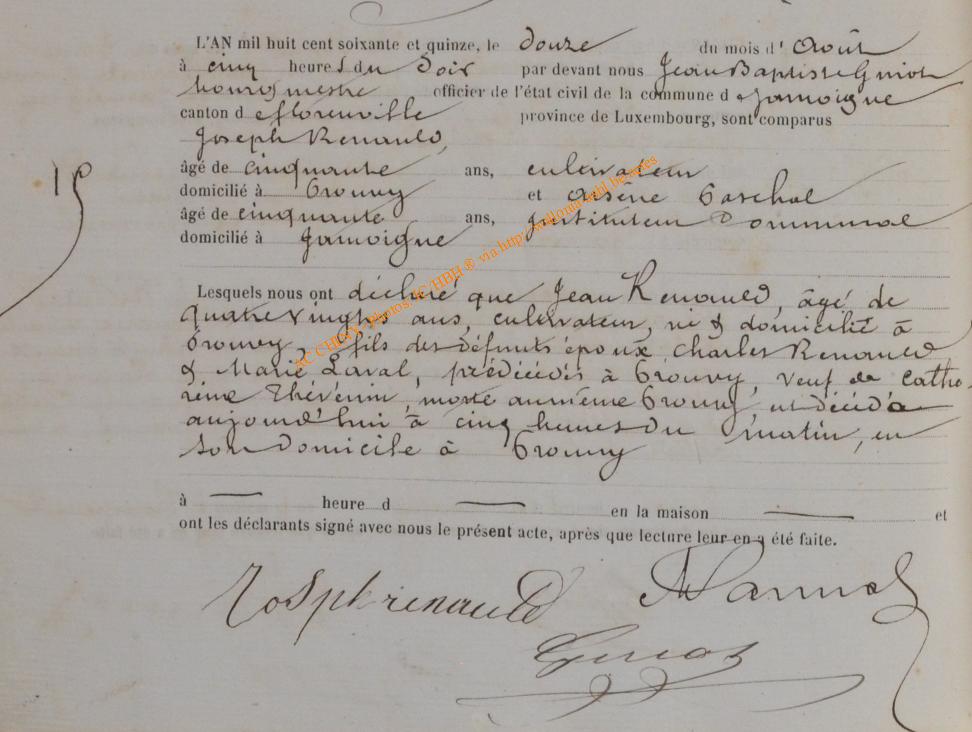 L'AN mil huit cent soixante et quinze, le douze du mois d'Août
à cinq heures du soir par devant nous Jean Baptiste Guiot
bourgmestre officier de l'état civil de la commune de Jamoigne
canton de Florenville province de Luxembourg, sont comparus
Joseph Renauld,
15
âgé de cinquante ans, cultivateur
domicilié à Prouvy et Arsène
âgé de cinquante ans, instituteur communal
domicilié à Jamoigne
Lesquels nous ont déclaré que Jean Renauld, âgé de
quatre vingts ans, cultivateur, né & domicilié à
Prouvy, fils des défunts époux Charles Renauld
& Marie Laval, prédécédés à Prouvy, veuf de Cathe-
rine Thévenin, morte au même Prouvy, est décédé
aujourd'hui à cinq heures du matin, en
son domicile à Prouvy
à — heure d — en la maison — et
ont les déclarants signé avec nous le présent acte, après que lecture leur en a été faite.
Joseph renauld
Guiot